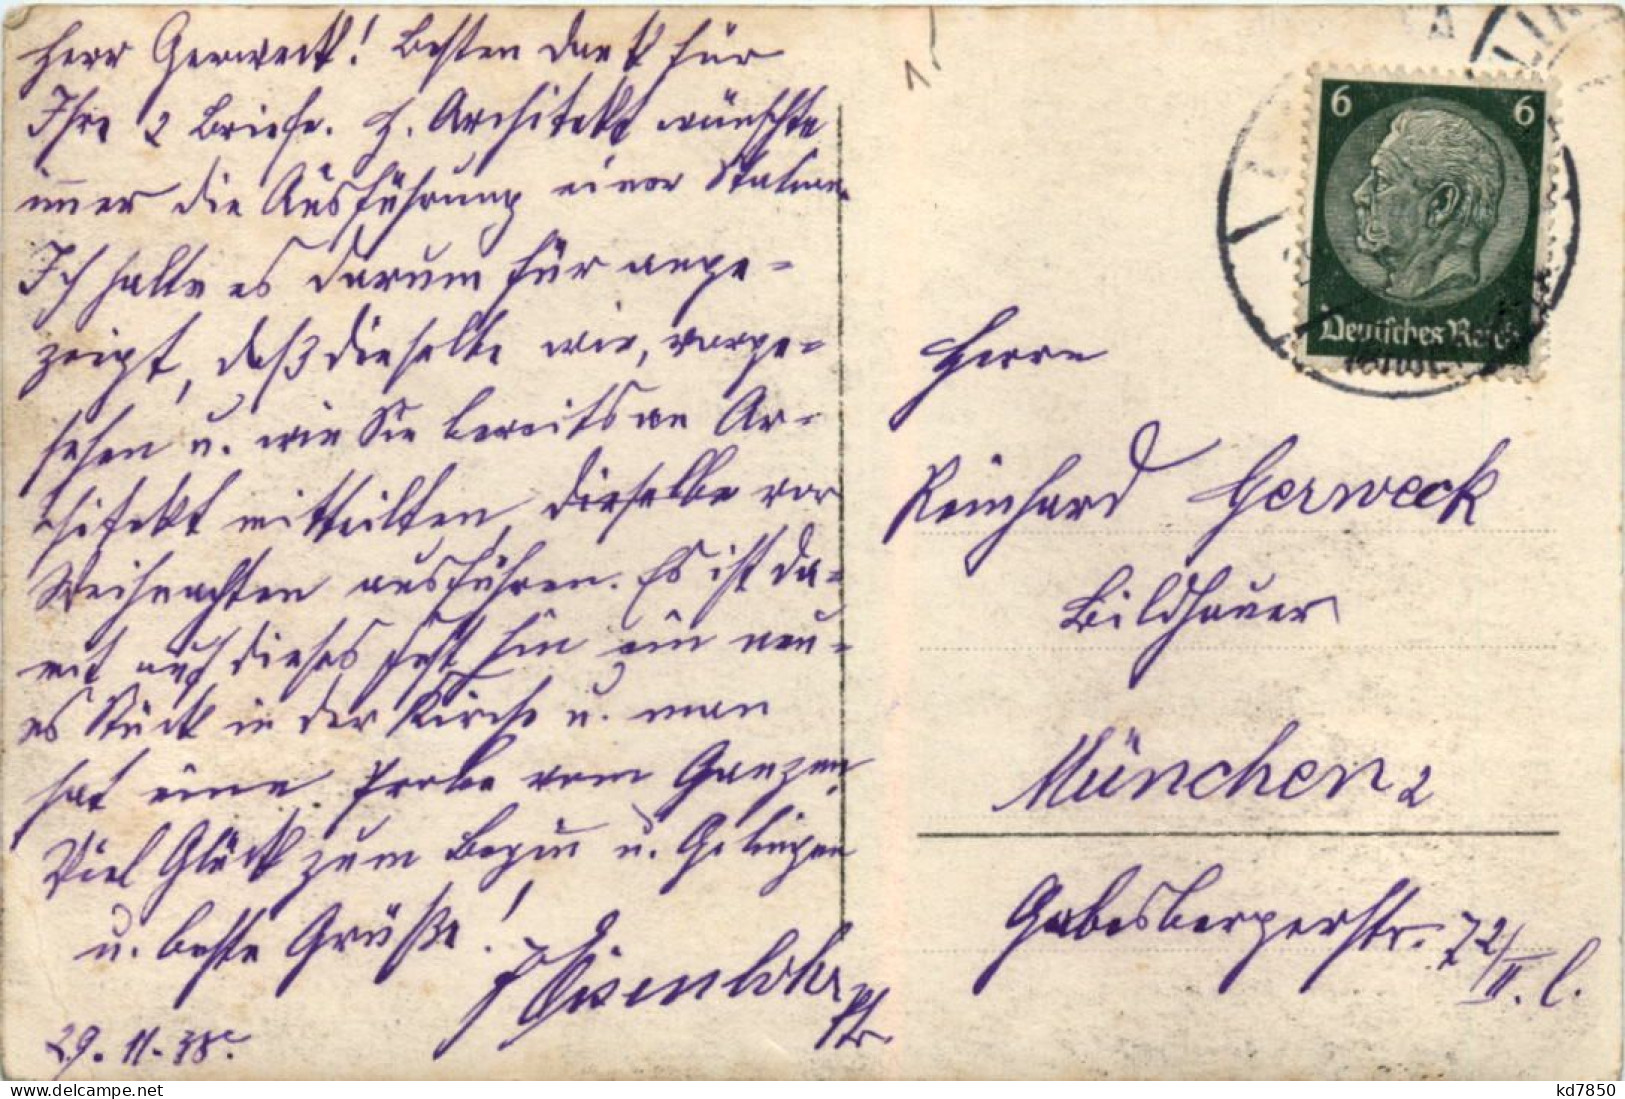 Herr Gerweck! Besten Dank für
Ihre 2 Briefe. H. Architekt wünschte
immer die Ausführung einer Statue.
Ich halte es darum für ange=
zeigt, daß dieselbe wie, vorge=
sehen u. wie Sie bereits an Ar=
chitekt mitteilten, dieselbe vor
Weihnachten ausführen. Es ist da=
mit auf dieses Fest hin ein neu=
es Stück in der Kirche u. man
hat eine Probe vom Ganzen.
Viel Glück zum Beginn u. Gelingen
u. beste Grüße!
Eisenlohr
Pfr.
29. 11. 38.
1.
6 6
Deutsches Reich
Herrn
Reinhard Gerweck
Bildhauer
München 2
Gabelsbergerstr. 72/II. l.
kd7850